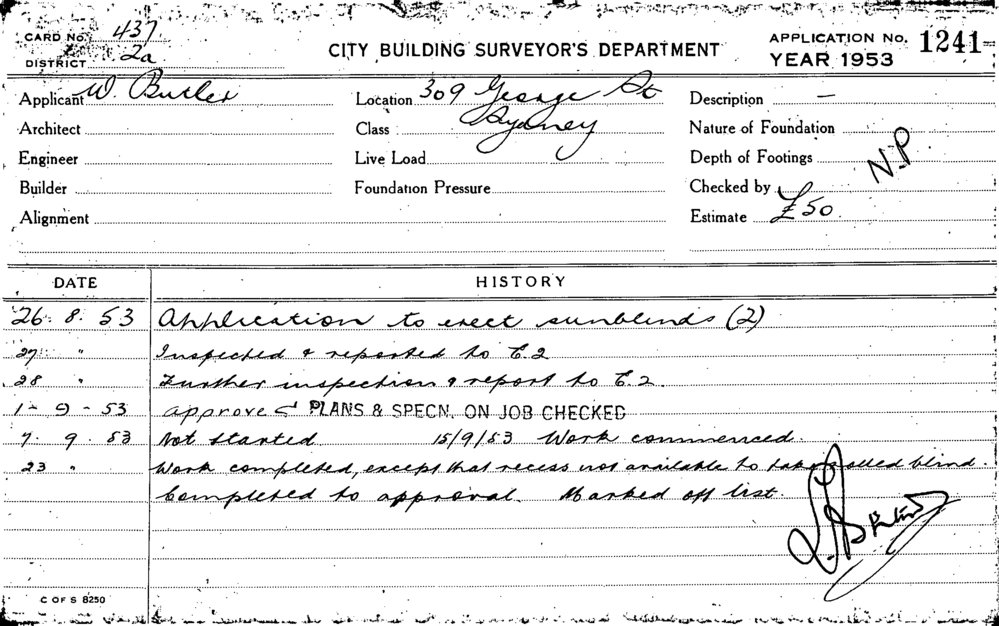 CARD No. 437
DISTRICT 2a
CITY BUILDING SURVEYOR'S DEPARTMENT
APPLICATION No. 1241
YEAR 1953
Applicant W. Butler
Location 309 George St
Sydney
Description —
Architect
Class
Nature of Foundation
Engineer
Live Load
Depth of Footings
N.P
Builder
Foundation Pressure
Checked by
Alignment
Estimate £50
DATE HISTORY
26. 8. 53 Application to erect sunblinds (2)
27 " Inspected & reported to E.2
28 " Further inspection & report to E.2.
1 - 9 - 53 approved PLANS & SPECN. ON JOB CHECKED
7. 9. 53 Not started 15/9/53 Work commenced.
23 " Work completed, except that recess not available to take rolled blind.
Completed to approval. Marked off list.
C OF S 8250